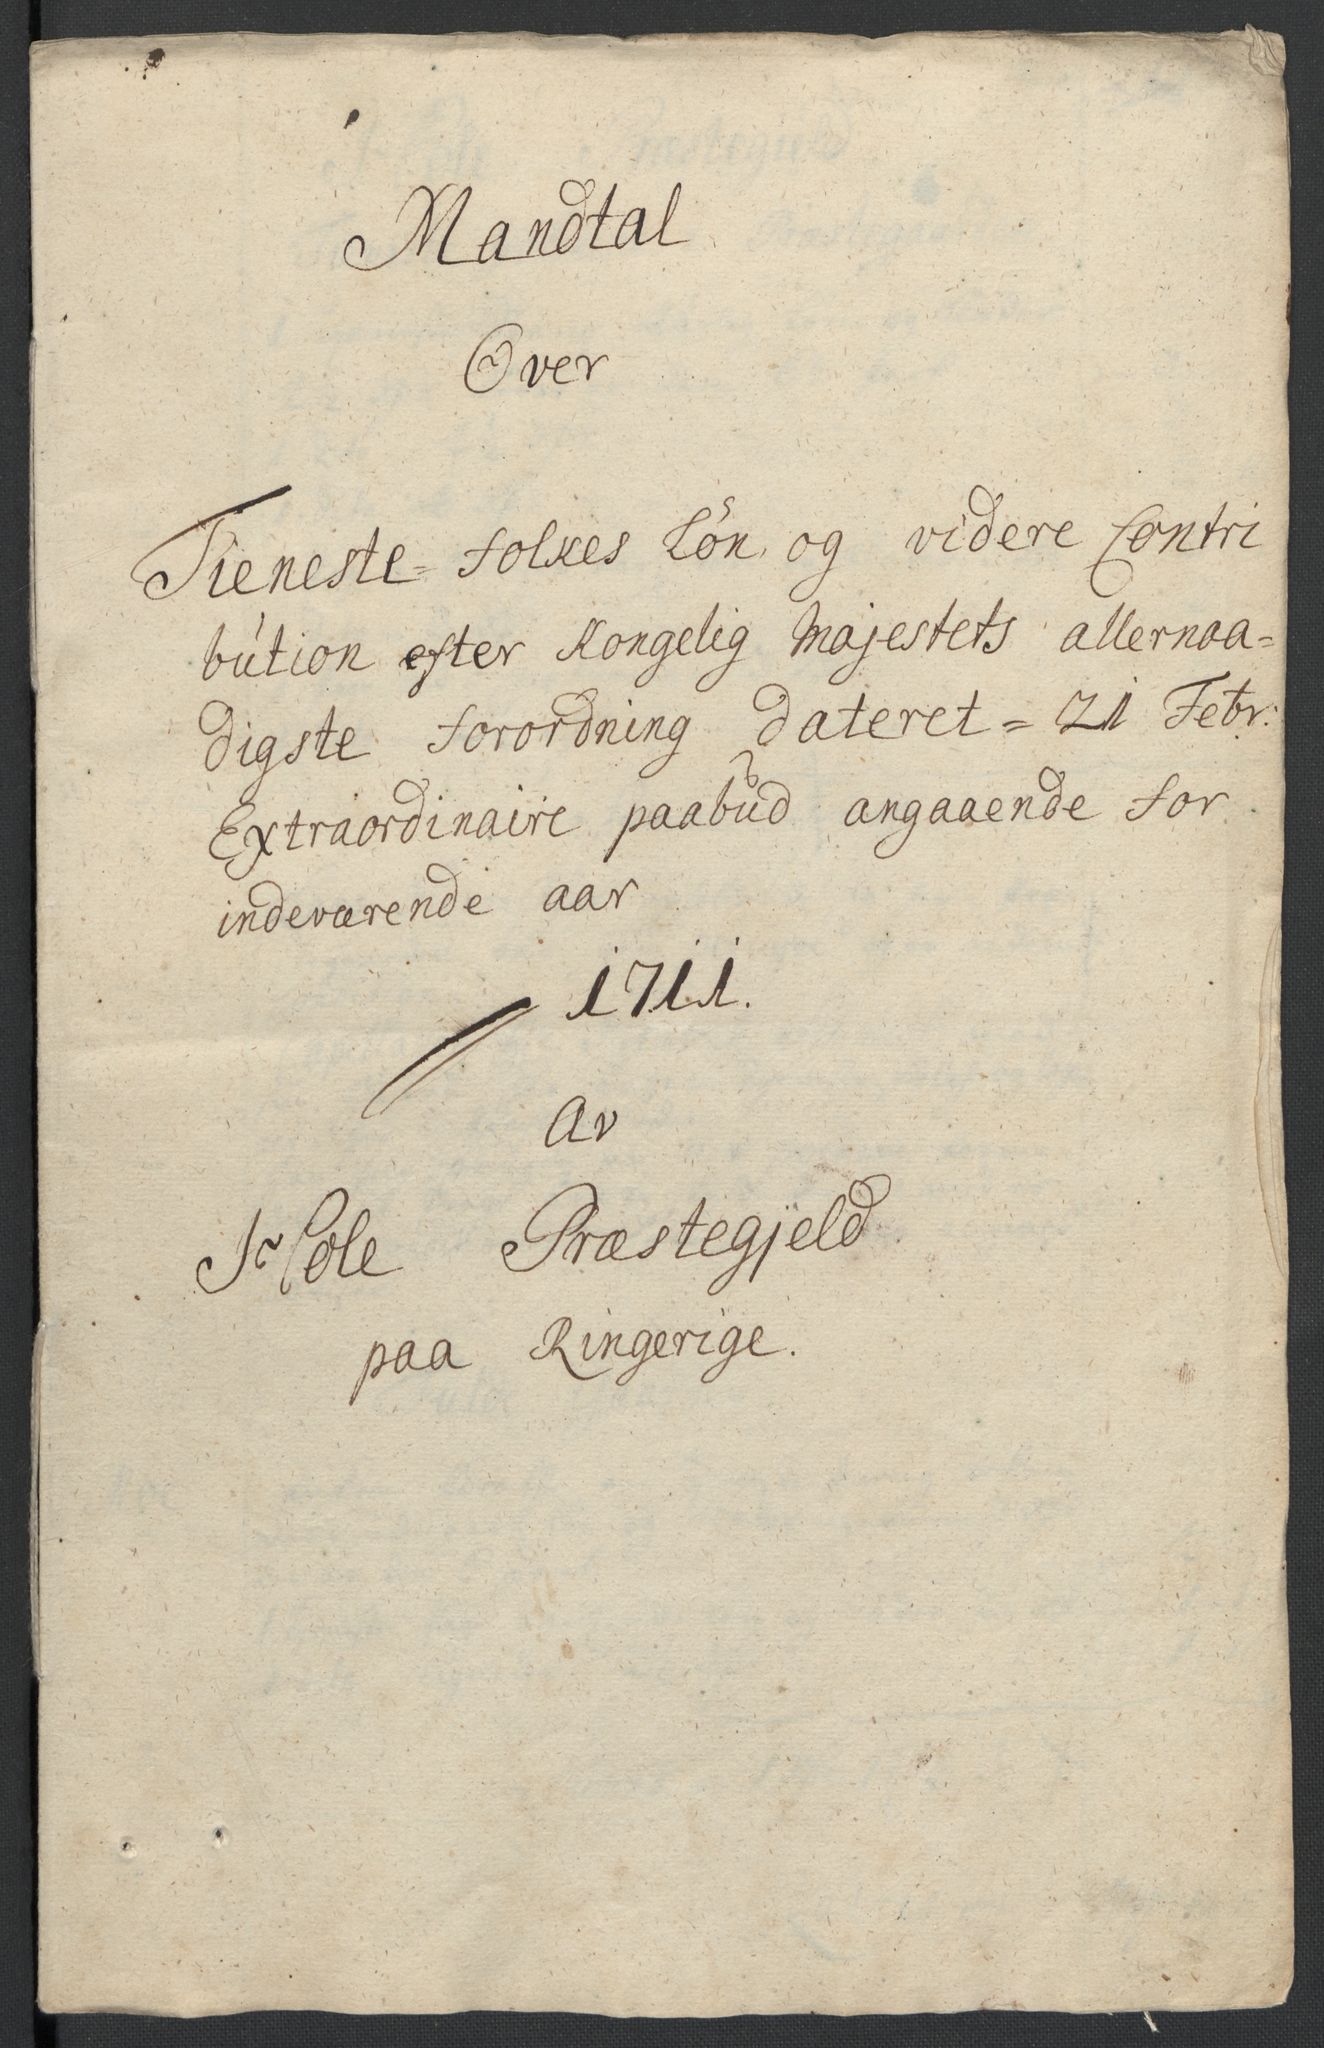 Mandtal
Over
Tieneste-folkes Lön og videre Contri
bution efter Kongelig Majestets allernaa=
digste forordning dateret = 21 Febr:
Extraordinaire paabud angaaende for
indeværende aar
1711.
Av
Præstegjeld
paa Ringerige.